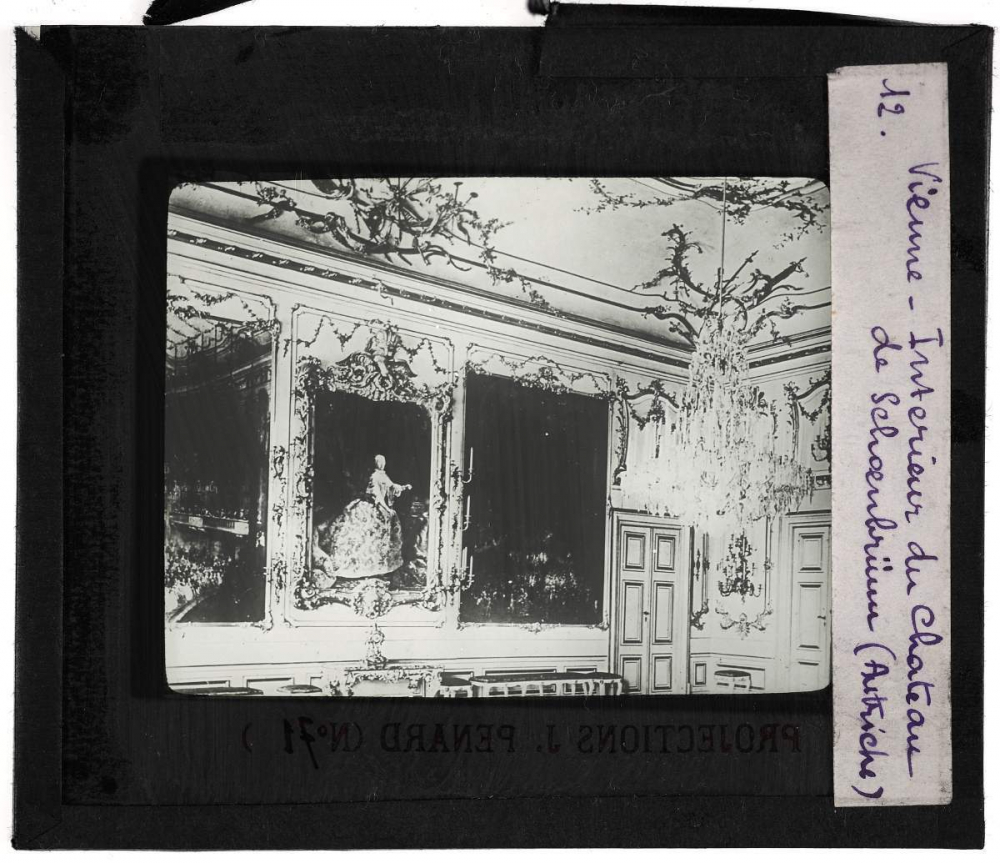 12. Vienne - Interieur du Chateau
de Schœnbrünn (Autriche)
PROJECTIONS J. PENARD (Nº 71 )